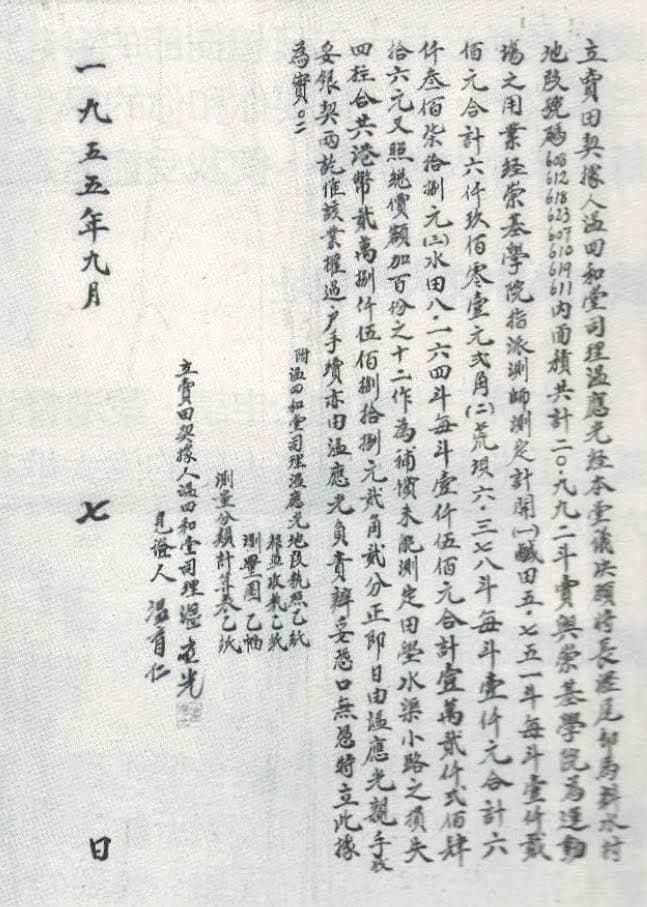 立賣田契據人溫四和堂司理溫應光経本堂議决願将長瀝尾即馬料水村
地段號碼608 612 618 623 607 610 619 611內面積共計二〇·九九二斗賣與崇基學院為運動
場之用業経崇基學院指派測師測定計開(一)鹹田五·七五一斗每斗壹仟貳
佰元合計六仟玖佰零壹元弍角(二)荒埧六·三七八斗每斗壹仟元合計六
仟叁佰柒拾捌元(三)水田八·一六四斗每斗壹仟伍佰元合計壹萬貳仟弍佰肆
拾六元又照總價額加百份之十二作為補償未能測定田壆水渠小路之損失
四柱合共港幣貳萬捌仟伍佰捌拾捌元貳角貳分正即日由溫應光親手收
妥銀契両訖僅該業權過户手續亦由溫應光負責辦妥恐口無憑特立此據
為實。
附溫四和堂司理溫應光地段執照乙紙
粮並收条乙紙
測量圖乙幅
測量分類計算表乙紙
立賣田契據人溫四和堂司理溫應光
見證人 溫育仁
一九五五年九月 七 日